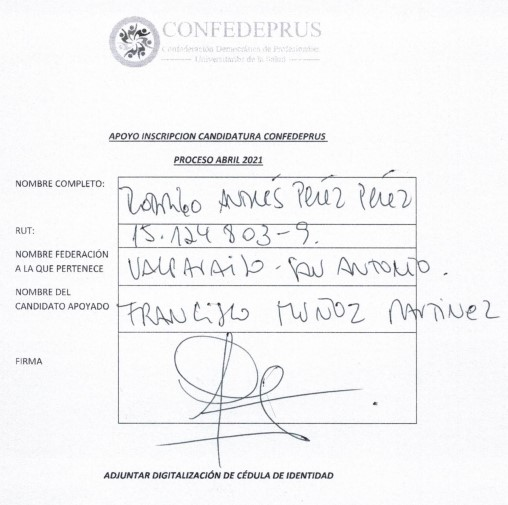 CONFEDEPRUS
Confederación Democrática de Profesionales
Universitarios de la Salud
APOYO INSCRIPCION CANDIDATURA CONFEDEPRUS
PROCESO ABRIL 2021
NOMBRE COMPLETO: Rodrigo Andrés Pérez Pérez
RUT: 15.124803-9.
NOMBRE FEDERACIÓN
A LA QUE PERTENECE VALPARAISO - SAN ANTONIO.
NOMBRE DEL
CANDIDATO APOYADO FRANCISCO MUÑOZ MARTINEZ
FIRMA
ADJUNTAR DIGITALIZACIÓN DE CÉDULA DE IDENTIDAD